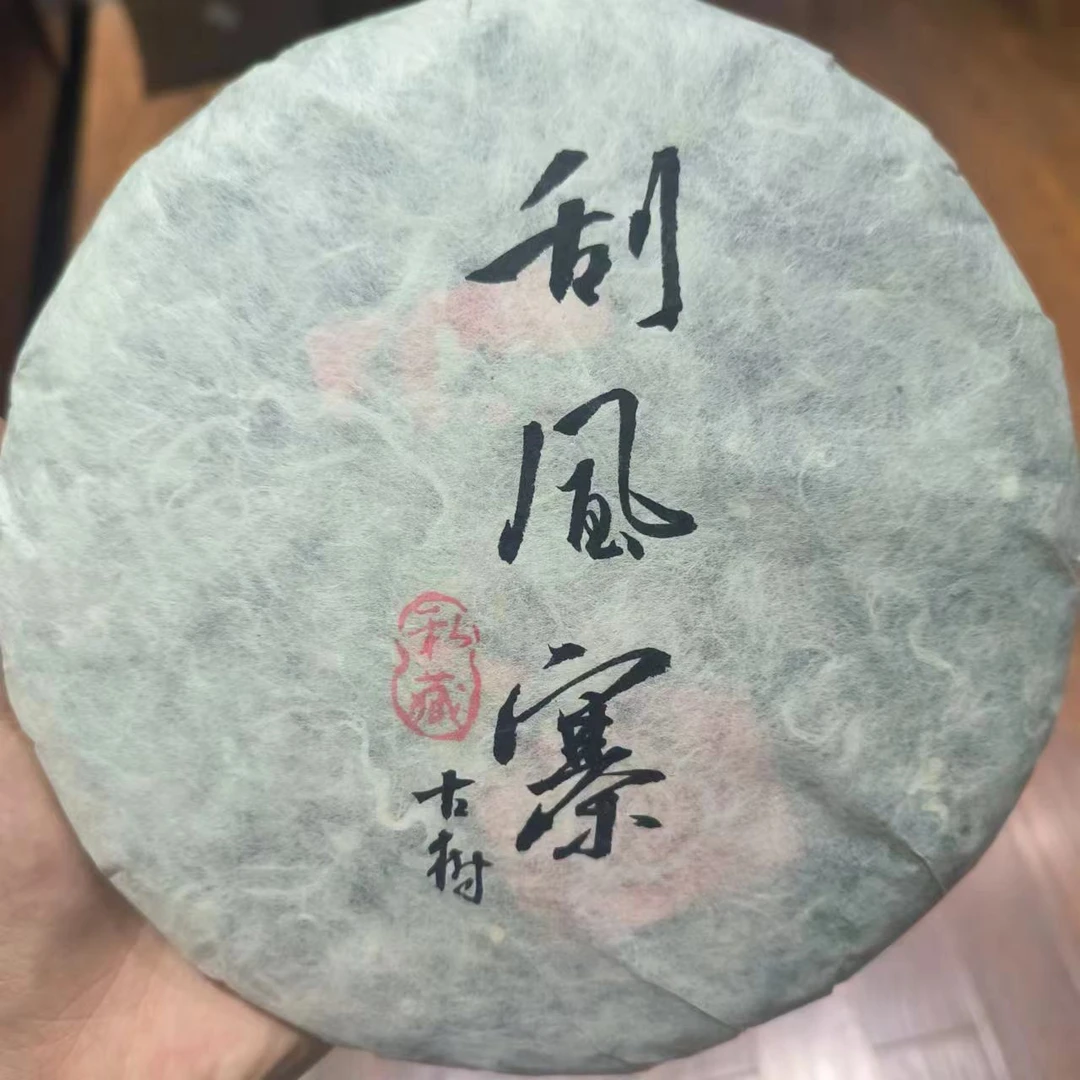 刮風寨
私藏
古树